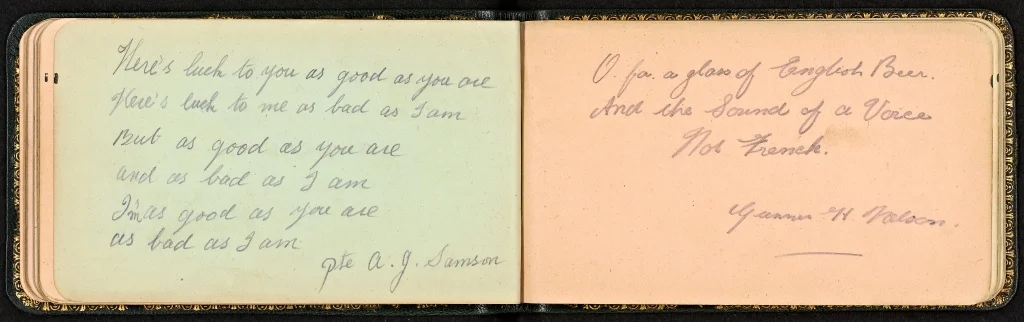 Here's luck to you as good as you are
Here's luck to me as bad as I am
But as good as you are
and as bad as I am
I'm as good as you are
as bad as I am
pte A. J. Samson
O. for a glass of English Beer.
And the Sound of a Voice
Not French.
Gunner H